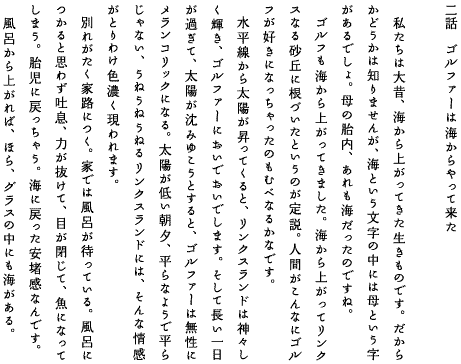 二話　ゴルファーは海からやって来た
私たちは大昔、海から上がってきた生きものです。だか
らどうかは知りませんが、海という文字の中には母という字
があるでしょ。母の胎内、あれも海だったのですね。
ゴルフも海から上がってきました。海から上がってリンク
スなる砂丘に根づいたというのが定説。人間がこんなにゴル
フが好きになっちゃったのもむべなるかなです。
水平線から太陽が昇ってくると、リンクスランドは神々し
く輝き、ゴルファーにおいでおいでします。そして長い一日
が過ぎて、太陽が沈みゆこうとすると、ゴルファーは無性に
メランコリックになる。太陽が低い朝夕、平らなようで平ら
じゃない、うねうねうねるリンクスランドには、そんな情感
がとりわけ色濃く現われます。
別れがたく家路につく。家では風呂が待っている。風呂に
つかると思わず吐息、力が抜けて、目が閉じて、魚になって
しまう。胎児に戻っちゃう。海に戻った安堵感なんです。
風呂から上がれば、ほら、グラスの中にも海がある。